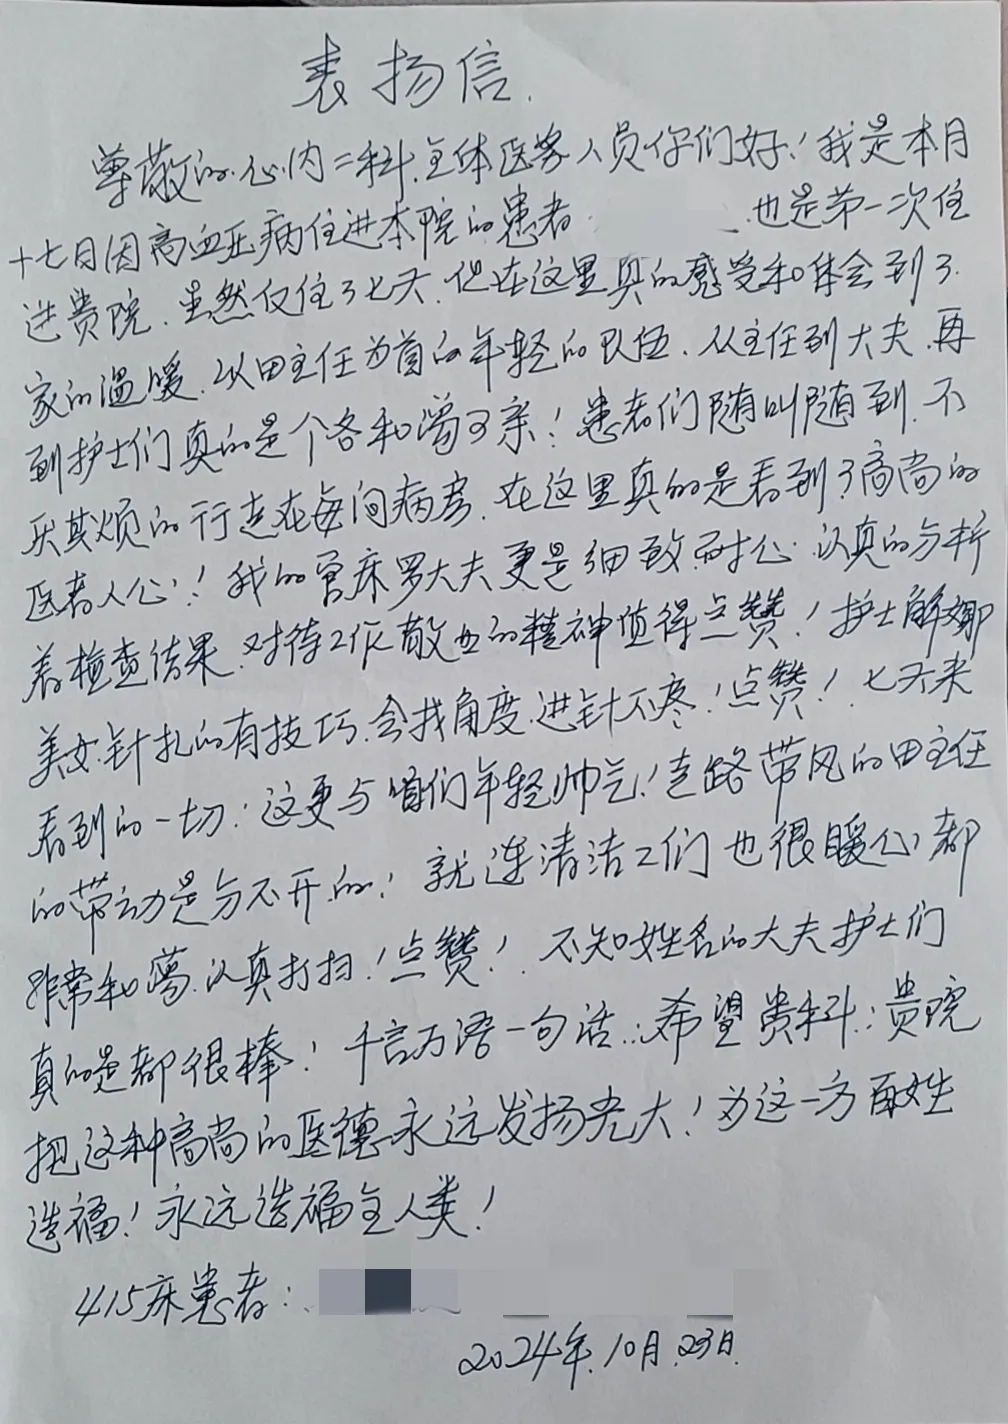 表扬信.
尊敬的心内二科全体医务人员你们好!我是本月
十七日因高血压病住进本院的患者 也是第一次住
进贵院.虽然仅住了七天.但在这里真的感受和体会到了
家的温暖.以田主任为首的年轻的队伍.从主任到大夫.再
到护士们真的是个各和蔼可亲!患者们随叫随到.不
厌其烦的行走在每间病房.在这里真的是看到了高尚的
医者人心!我的管床罗大夫更是细致耐心.认真的分析
着检查结果.对待工作敬业的精神值得点赞!护士解娜
美女.针扎的有技巧.会找角度.进针不疼!点赞!七天来
看到的一切!这更与咱们年轻帅气!走路带风的田主任
的带动是分不开的!就连清洁工们也很暖心都
非常和蔼.认真打扫!点赞!不知姓名的大夫护士们
真的是都很棒!千言万语一句话:希望贵科:贵院
把这种高尚的医德永远发扬光大!为这一方百姓
造福!永远造福全人类!
415床患者:
2024年.10月.23日.